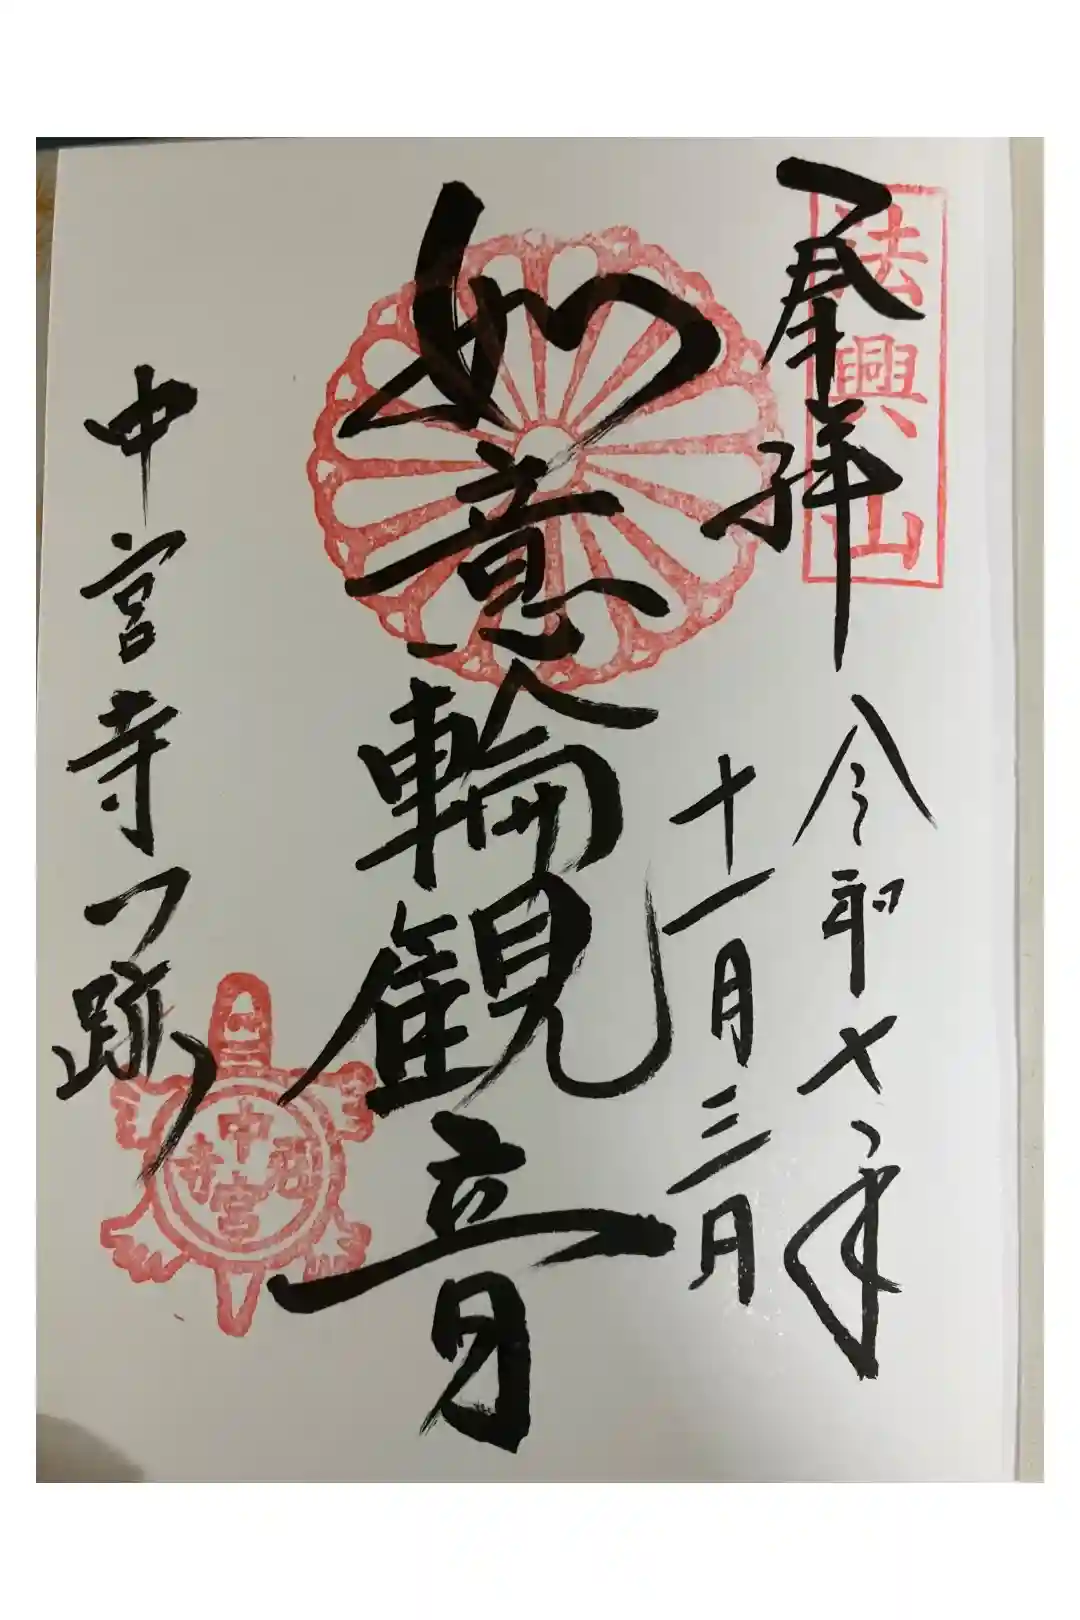 奉拝
法興山
令和七年
十一月三日
如意輪観音
中宮寺門跡
中宮寺